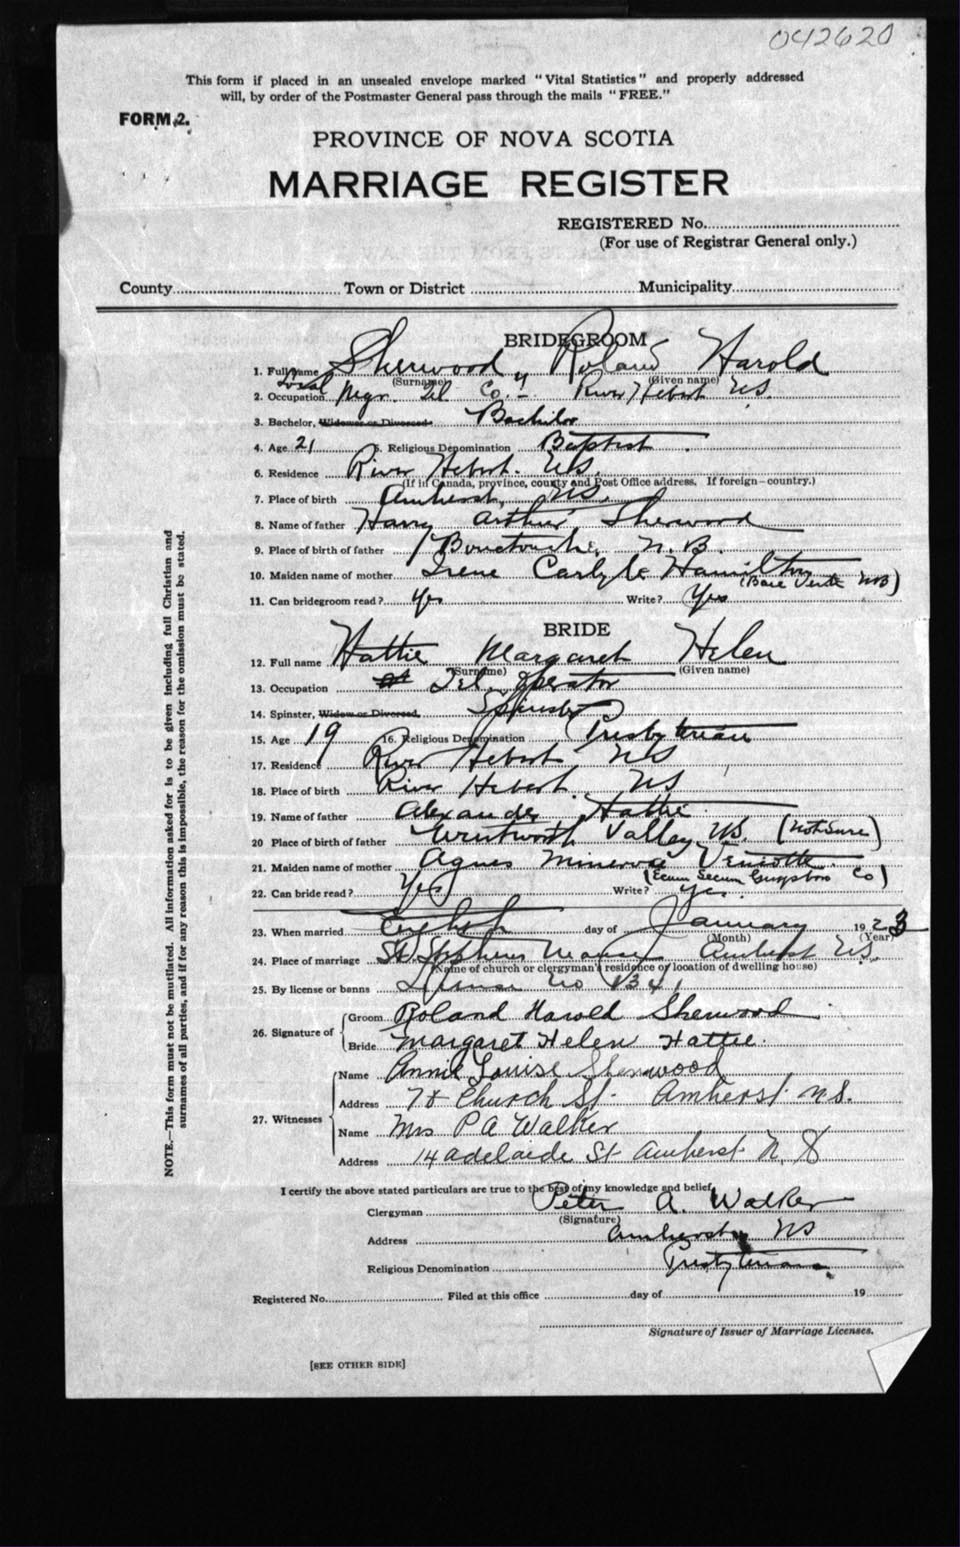 042620
This form if placed in an unsealed envelope marked "Vital Statistics" and properly addressed
will, by order of the Postmaster General pass through the mails "FREE."
FORM 2.
PROVINCE OF NOVA SCOTIA
MARRIAGE REGISTER
REGISTERED No.
(For use of Registrar General only.)
County Town or District Municipality
BRIDEGROOM
1. Full name Sherwood, Roland Harold
(Surname) (Given name)
2. Occupation Local Mgr. Tel Co. River Hebert NS.
3. Bachelor, Widower or Divorced Bachelor
4. Age 21 5. Religious Denomination Baptist
6. Residence River Hebert. NS.
(If in Canada, province, county and Post Office address. If foreign—country.)
7. Place of birth Amherst, NS.
8. Name of father Harry Arthur Sherwood
9. Place of birth of father Bouctouche, N.B.
10. Maiden name of mother Irene Carlyle Hamilton
(Baie Verte NB)
11. Can bridegroom read? Yes Write? Yes
BRIDE
12. Full name Hattie Margaret Helen
(Surname) (Given name)
13. Occupation Tel. Operator
14. Spinster, Widow or Divorced Spinster
15. Age 19 16. Religious Denomination Presbyterian
17. Residence River Hebert NS
18. Place of birth River Hebert. NS
19. Name of father Alexander Hattie
20 Place of birth of father Wentworth Valley NS. (Not Sure)
21. Maiden name of mother Agnes Minerva
(Ecum Secum Guysboro Co)
22. Can bride read? Yes Write? yes
23. When married Eighth day of January 1923
(Month) (Year)
24. Place of marriage St Stephens Manse Amherst NS.
(Name of church or clergyman's residence or location of dwelling house)
25. By license or banns License No
26. Signature of Groom Roland Harold Sherwood
Bride Margaret Helen Hattie.
27. Witnesses Name Annie Louise Sherwood
Address Church St. Amherst N.S.
Name Mrs P A Walker
Address 14 Adelaide St Amherst N S
I certify the above stated particulars are true to the best of my knowledge and belief.
Clergyman Peter A. Walker
(Signature)
Address Amherst NS
Religious Denomination Presbyterian
Registered No. Filed at this office day of 19
Signature of Issuer of Marriage Licenses.
[SEE OTHER SIDE]
NOTE.—This form must not be mutilated. All information asked for is to be given including full Christian and
surnames of all parties, and if for any reason this is impossible, the reason for the omission must be stated.